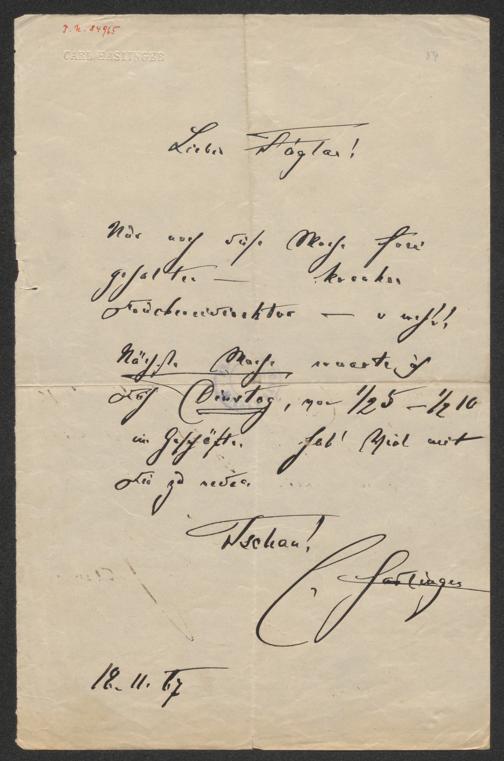 J. N. 84965
CARL HASLINGER
Lieber Tögler!
Nur noch diese Woche
gehalten — kranker
Druckereidirektor —
Nächste Woche erwarte ich
Dich Dienstag, von 1/25 – 1/210
im Geschäfte. Hab' Viel mit
Dir zu reden
Tschau!
C. Haslinger
18. 11. 67